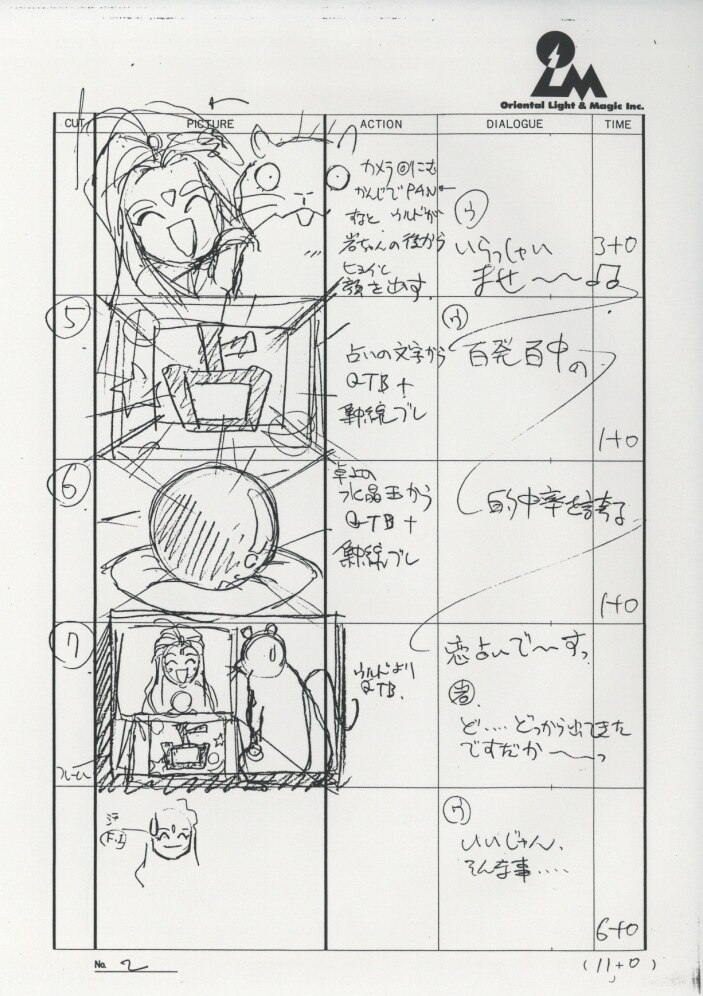 Oriental Light & Magic Inc.
CUT PICTURE ACTION DIALOGUE TIME
カメラ回にむ
かんじでPAN
すると ウルドが
岩ちゃんの後から
ヒョイと
顔を出す.
ウ
いらっしゃい
ませ〜〜♫
3+0
5
占いの文字から
QTB+
ブレ
ウ
百発百中の
1+0
6
卓上の
水晶玉から
QTB+
ブレ
的中率を誇る
1+0
7
フレーム
ウルドより
QTB.
恋占いで〜すっ
岩
ど…. どっから出てきた
ですだか〜〜っ
汗
F.I
ウ
いいじゃん.
そんな事….
6+0
No. 2
(11+0)